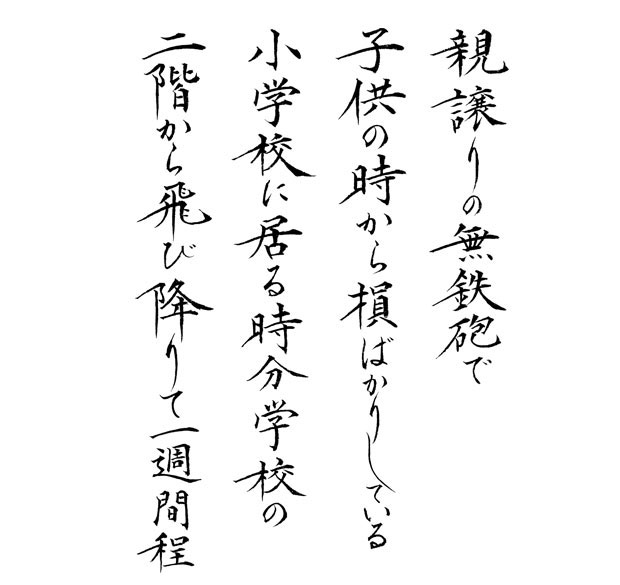 親譲りの無鉄砲で
子供の時から損ばかりしている
小学校に居る時分学校の
二階から飛び降りて一週間程